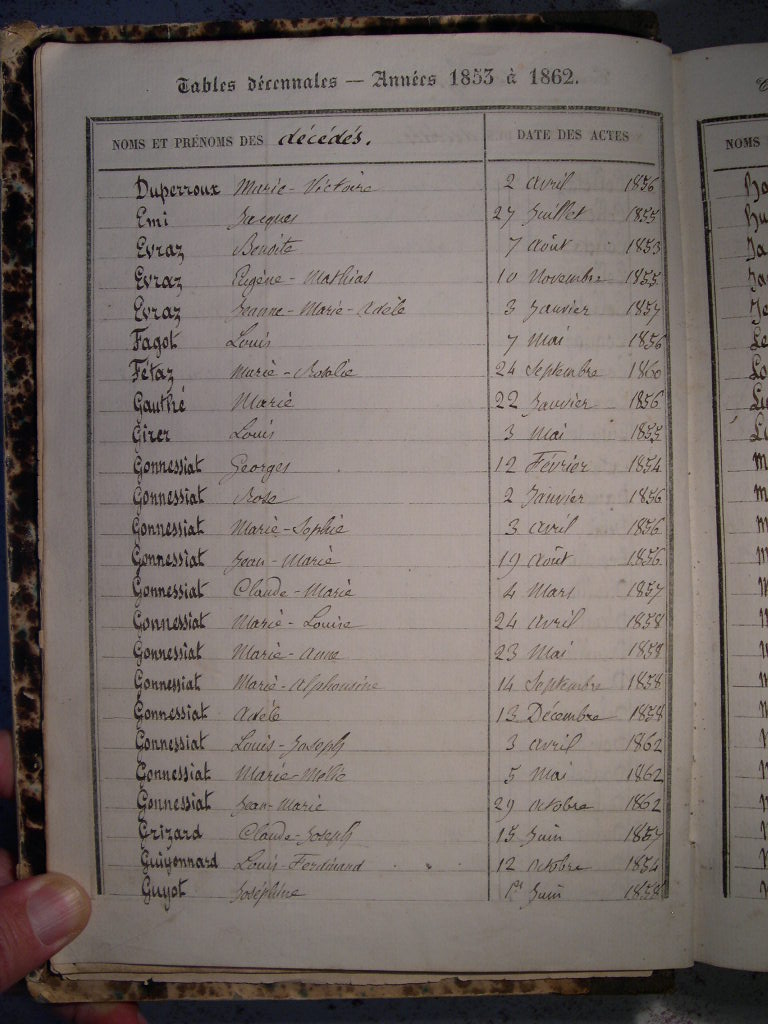 Tables décennales — Années 1853 à 1862.
NOMS ET PRÉNOMS DES décédés. DATE DES ACTES
Duperroux Marie-Victoire 2 avril 1856
Emi Jacques 27 Juillet 1855
Evraz Benoite 7 août 1853
Evraz Eugène-Mathias 10 Novembre 1855
Evraz Jeanne-Marie-Adèle 3 Janvier 1857
Fagot Louis 7 Mai 1856
Fétaz Marie-Rosalie 24 Septembre 1860
Gauthé Marie 22 Janvier 1856
Girer Louis 3 Mai 1855
Gonnessiat Georges 12 Février 1854
Gonnessiat Rose 2 Janvier 1856
Gonnessiat Marie-Sophie 3 avril 1856
Gonnessiat Jean-Marie 19 août 1856
Gonnessiat Claude-Marie 4 Mars 1857
Gonnessiat Marie-Louise 24 avril 1858
Gonnessiat Marie-Anne 23 Mai 1858
Gonnessiat Marie-Alphonsine 14 Septembre 1858
Gonnessiat Adèle 13 Décembre 1858
Gonnessiat Louis-Joseph 3 avril 1862
Gonnessiat Marie 5 Mai 1862
Gonnessiat Jean-Marie 29 octobre 1862
Grizard Claude-Joseph 15 Juin 1857
Guigonnard Louis-Ferdinand 12 octobre 1854
Guyot Joséphine 1er Juin 1858
NOMS